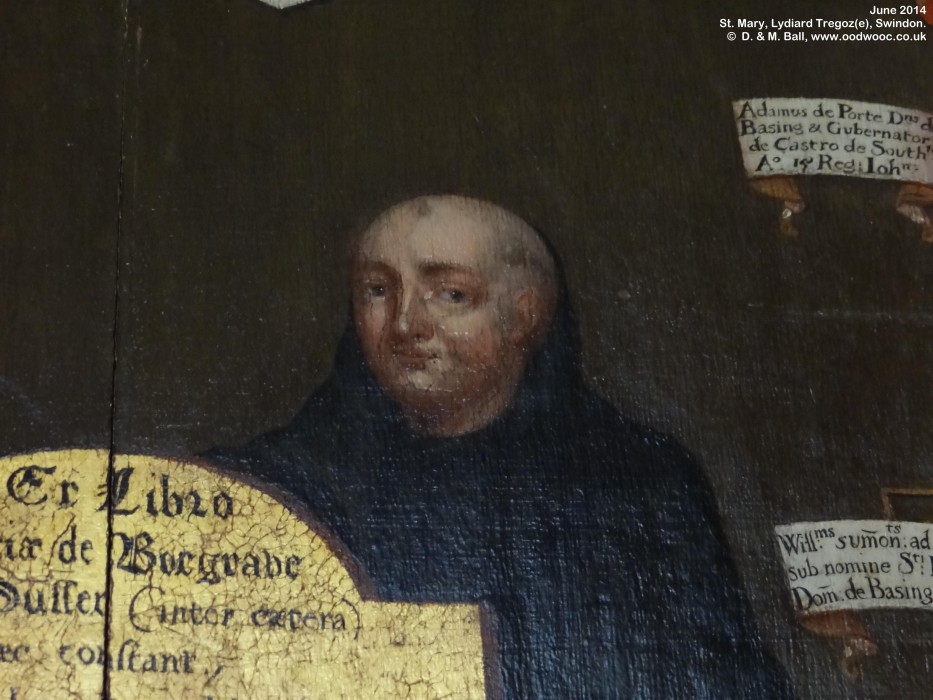 June 2014
St. Mary, Lydiard Tregoz(e), Swindon.
© D. & M. Ball, www.oodwooc.co.uk
Adamus de Porte Dns d
Basing & Gubernator
de Castro de South
Ao. Reg: Ioh
Ex Libro
iæ de Borgrabe
Suſſex (inter cætera)
ec conſtant,
Willms sum̄on:ts ad
sub nomine Sti
Dom. de Basing